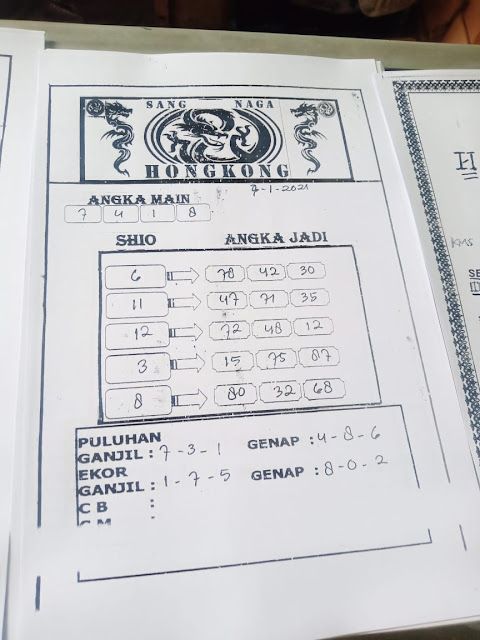 SANG NAGA
HONGKONG
7-1-2021
ANGKA MAIN
7 4 1 8
SHIO ANGKA JADI
6 78 42 30
11 47 71 35
12 72 48 12
3 15 75 87
8 80 32 68
PULUHAN
GANJIL : 7-3-1 GENAP : 4-8-6
EKOR
GANJIL : 1-7-5 GENAP : 8-0-2
C B :
H
KMS
SE